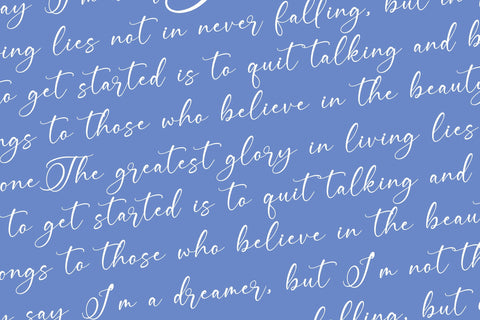 say I'm a
ing lies not in never falling, but in
to get started is to quit talking and b
ngs to those who believe in the beauty
one. The greatest glory in living lies
to get started is to quit talking and
ongs to those who believe in the beau
y say I'm a dreamer, but I'm not th
falling, but